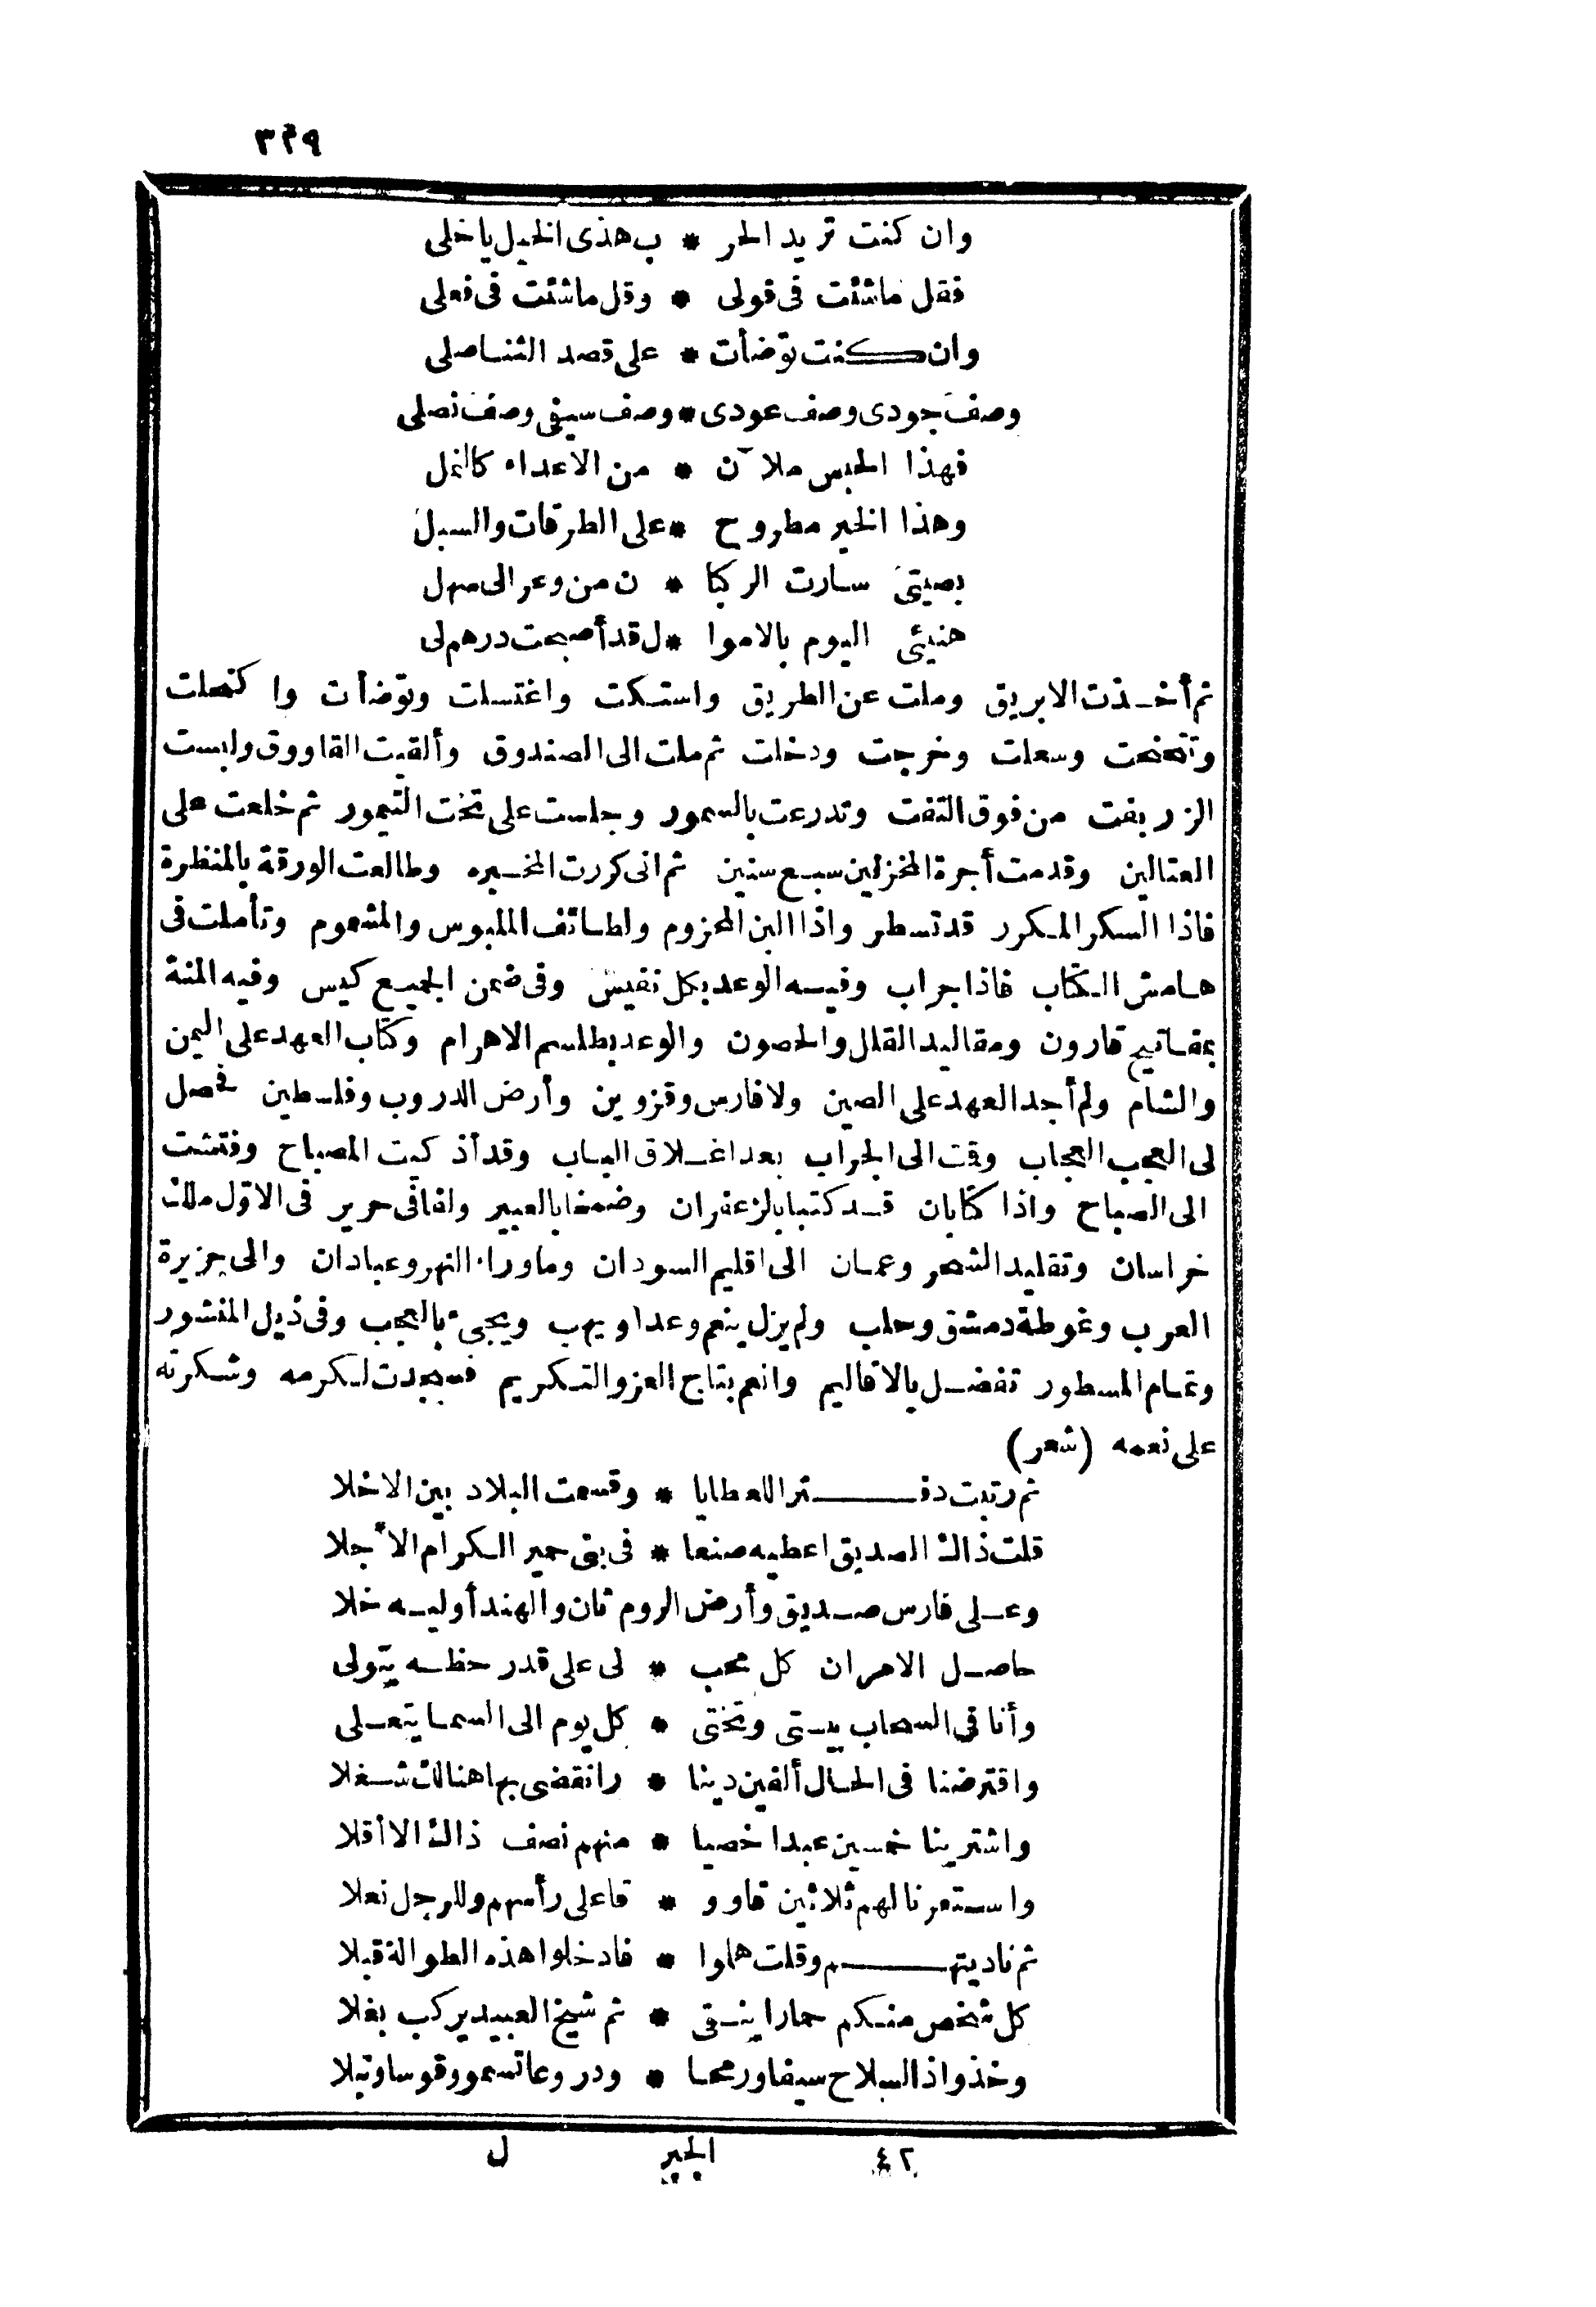 ٣٢٩
وان كنت تريد الحر * ب هذى الخيل ياخلى
فقل ماشئت فى قولى * وقل ماشئت فى فعلى
وان كنت توضأت * على قصد الثناصلى
وصف جودى وصف عودى * وصف سيفى وصف نصلى
فهذا الحبس ملآن * من الاعداء كالنمل
وهذا الخير مطروح * على الطرقات والسبل
بصيتى سارت الركبا * ن من وعر الى سهل
هنيئى اليوم بالاموا * ل قد أصبحت درهم لى
ثم أخذت الابريق وملت عن الطريق واستكت واغتسلت وتوضأت واكتحلت
وتنحنحت وسعلت وخرجت ودخلت ثم ملت الى الصندوق وألقيت القاووق ولبست
الزربفت من فوق التفت وتدرعت بالسمور وجلست على تخت التيمور ثم خلعت على
العتالين وقدمت أجرة المخزلين سبع سنين ثم انى كررت المخبره وطالعت الورقة بالمنظرة
فاذا السكر المكرر قد تسطر واذا البن المحزوم ولطائف الملبوس والمشموم وتأملت فى
هامش الكتاب فاذا جراب وفيه الوعد بكل نفيس وفى ضمن الجميع كيس وفيه المنة
بمفاتيح قارون ومقاليد القلال والحصون والوعد بطلسم الاهرام وكتاب العهد على اليمن
والشام ولم أجد العهد على الصين ولا فارس وقزوين وأرض الدروب وفلسطين فحصل
لى العجب العجاب وقمت الى الجراب بعد اغلاق الباب وقد أذ كيت المصباح وفتشت
الى الصباح واذا كتابان قد كتبا بالزعفران وضمخا بالعبير ولفا فى حرير فى الاول ملك
خراسان وتقليد الشحر وعمان الى اقليم السودان وماوراء النهر وعبادان والى جزيرة
العرب وغوطة دمشق وحلب ولم يزل ينعم وعدا ويهب ويجىء بالعجب وفى ذيل المنشور
وتمام المسطور تفضل بالاقاليم وانعم بتاج العز والتكريم فسجدت لكرمه وشكرته
على نعمه (شعر)
ثم رتبت دفترا للعطايا * وقسمت البلاد بين الاخلا
قلت ذاك الصديق اعطيه صنعا * فى بنى حمير الكرام الأجلا
وعلى فارس صديق وأرض الروم ثان والهند أوليه خلا
حاصل الامر ان كل محب * لى على قدر حظه يتولى
وأنا فى السحاب بيتى وتختى * كل يوم الى السما يتعلى
واقترضنا فى الحال ألفين دينا * را نقضى بها هنالك شغلا
واشترينا خمسين عبدا خصيا * منهم نصف ذاك الا أقلا
واستعرنا لهم ثلاثين قاوو * قا على رأسهم وللرجل نعلا
ثم ناديتهم وقلت هلموا * فادخلوا هذه الطوالة قبلا
كل شخص منكم حمارا ينقى * ثم شيخ العبيد يركب بغلا
وخذوا ذا السلاح سيفا ورمحا * ودروعا تسمو وقوسا ونبلا
٤٢ الجبر ل